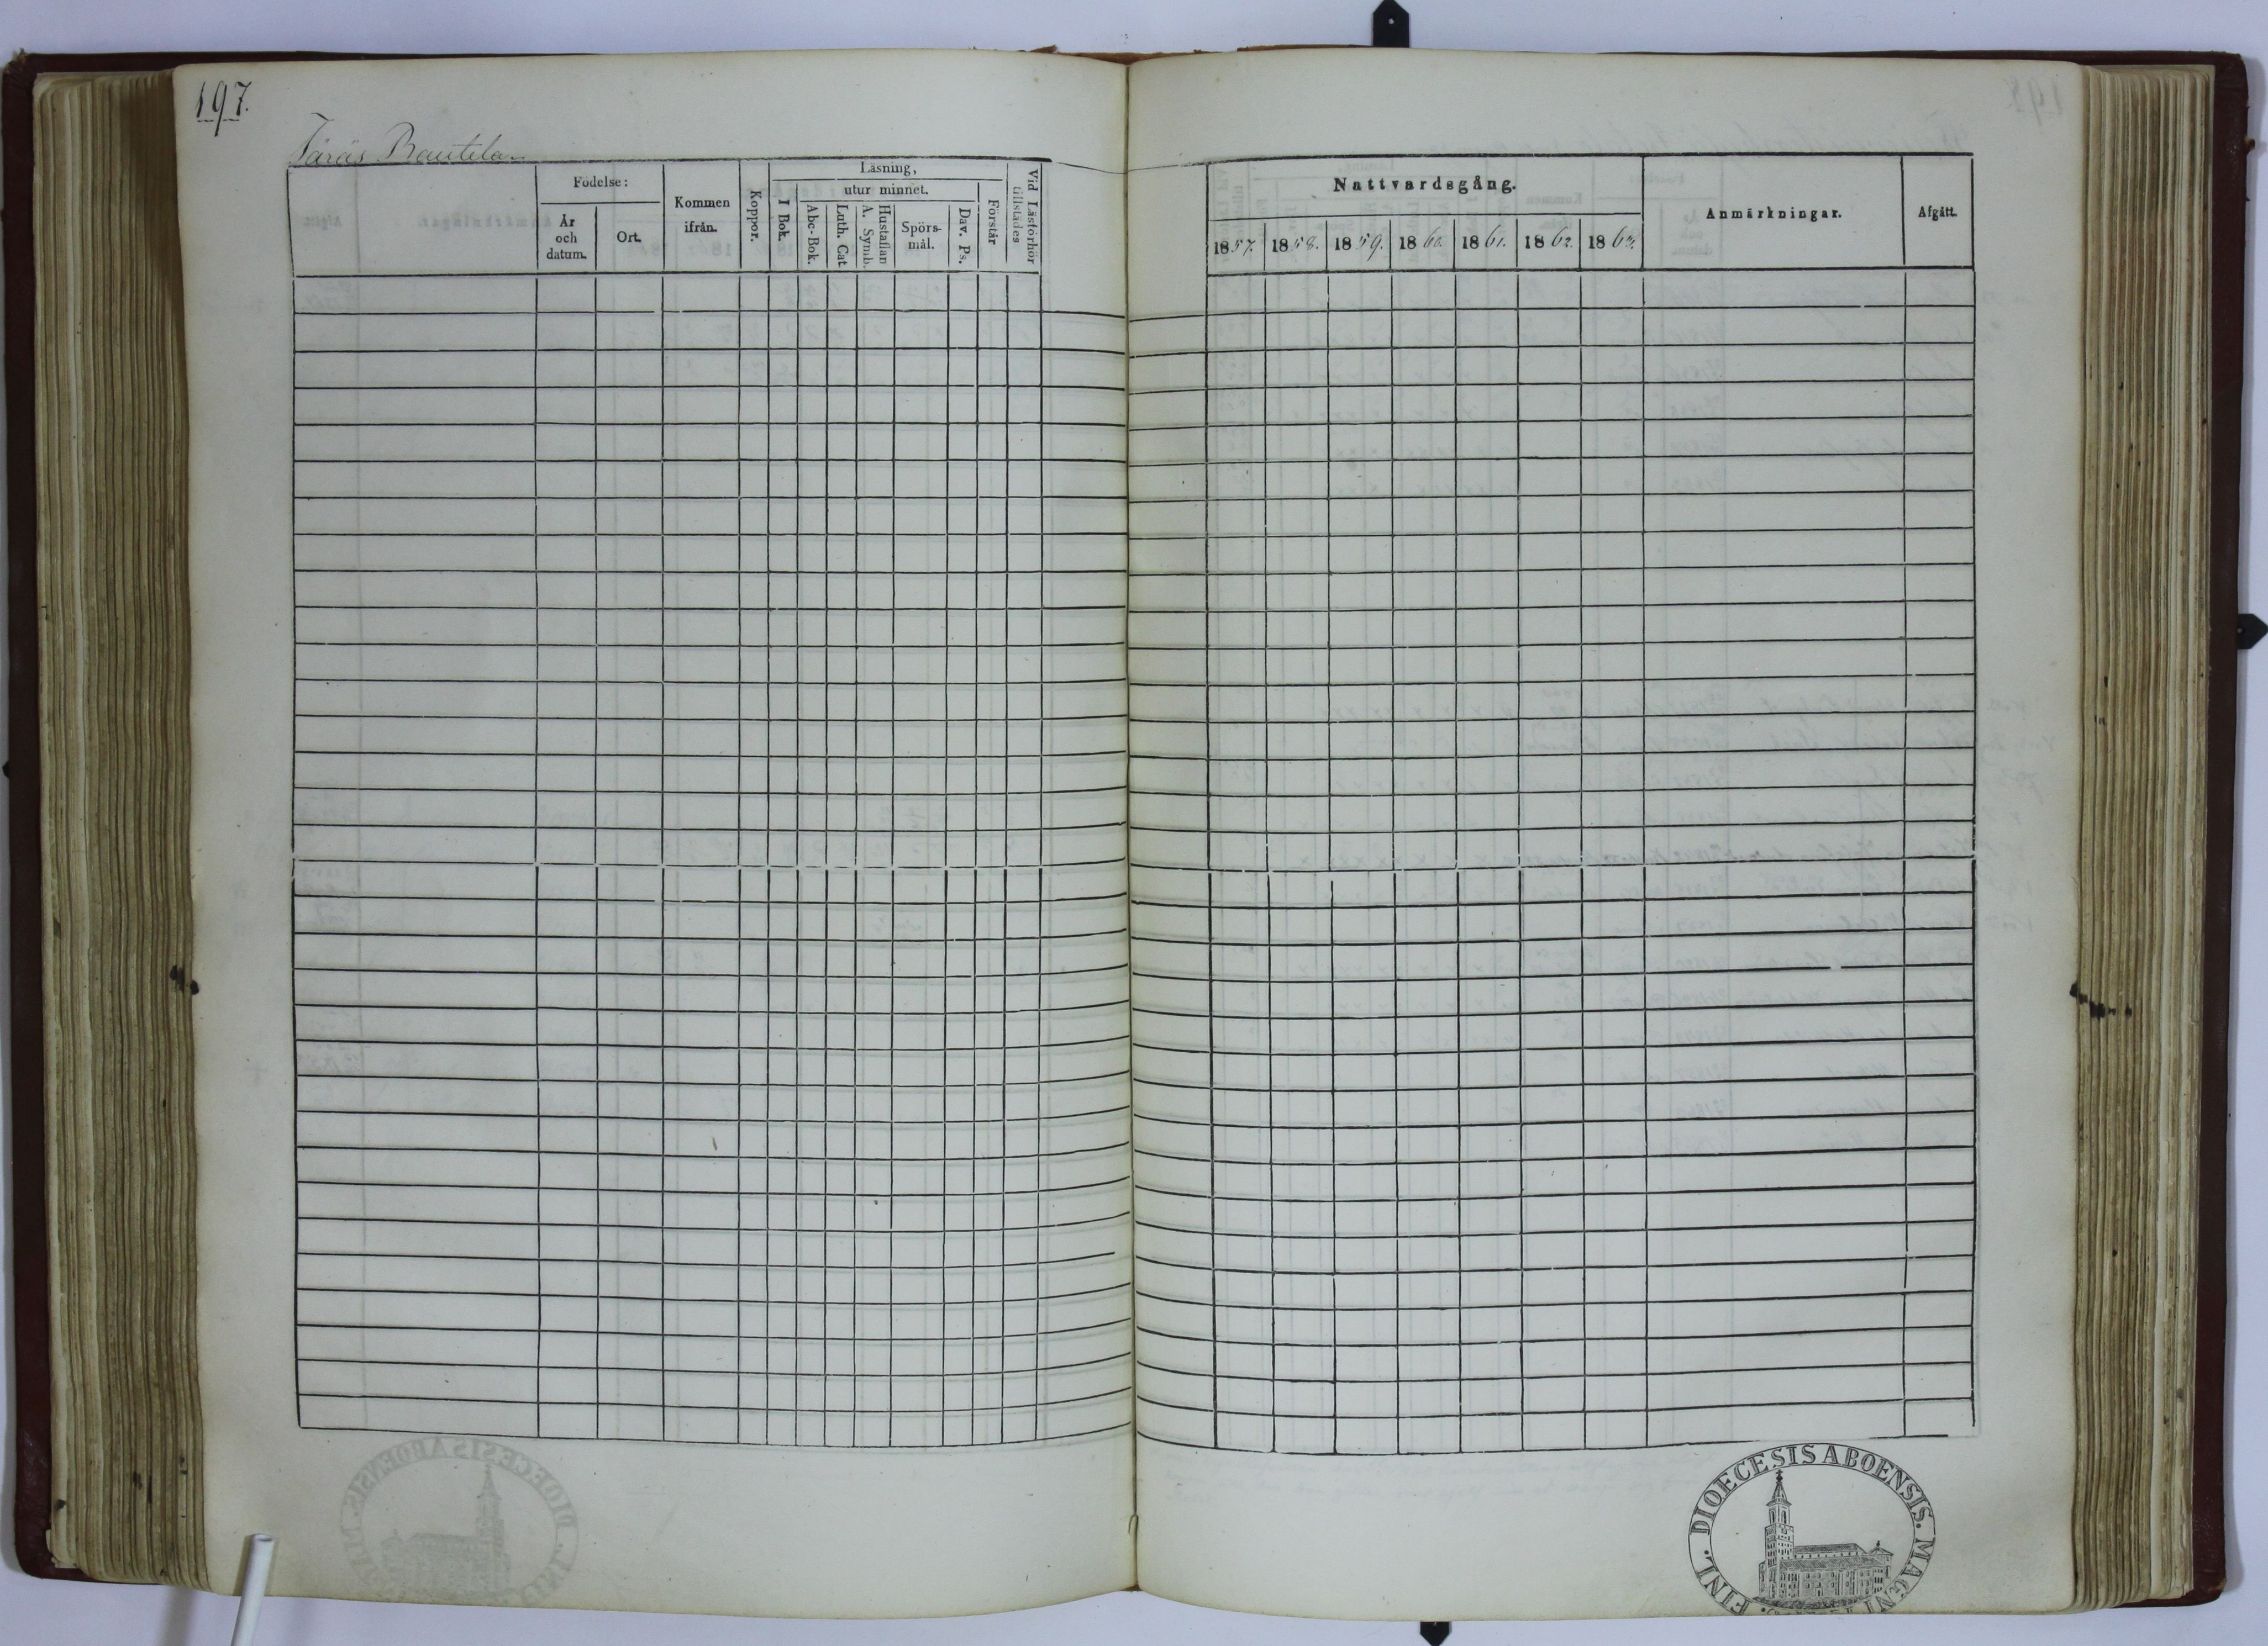 197.
Järäs Rautila
Födelse:
År och datum.
Ort.
Kommen ifrån.
Koppor.
Läsning,
utur minnet.
I Bok.
Abc-Bok.
Luth. Cat
Hustaflan A. Symb.
Spörs-mål.
Dav. Ps.
Förstår
Vid Läsförhör tillstädes
Nattvardsgång.
1857. 1858. 1859. 1860. 1861. 1862. 1863.
Anmärkningar.
Afgått.
DIOECESIS ABOENSIS. MAGNI FINL.